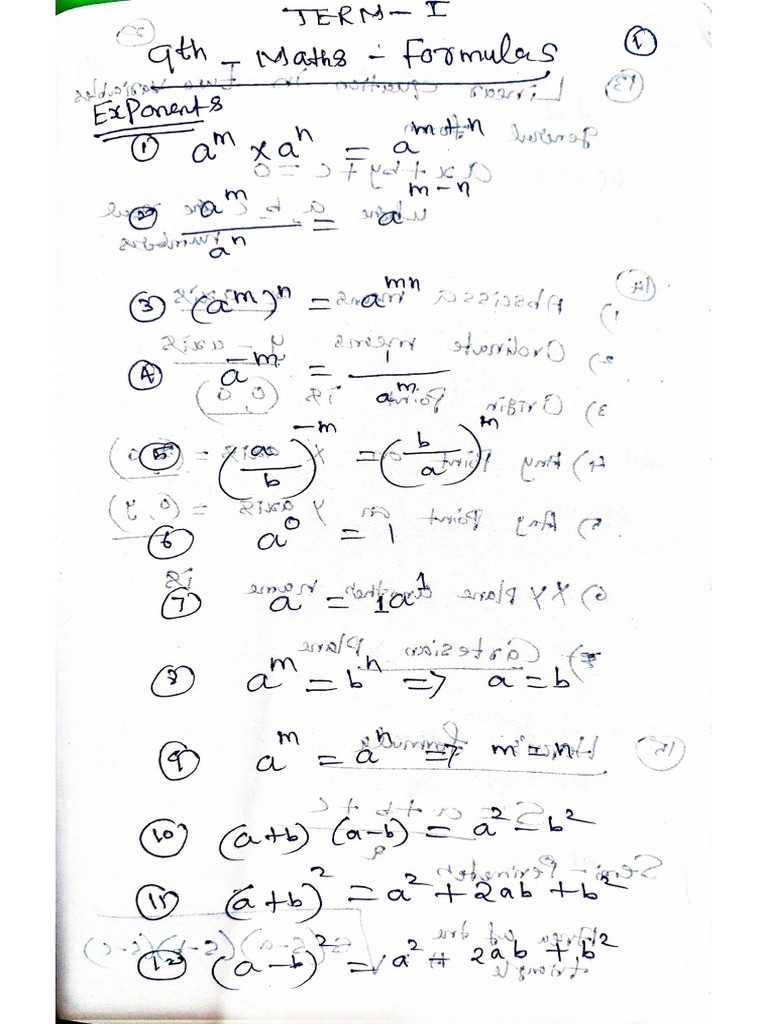 TERM - I
9th - Maths - Formulas ①
Exponents
① a^m × a^n = a^(m+n)
② a^m / a^n = a^(m-n)
③ (a^m)^n = a^(mn)
④ a^(-m) = 1 / a^m
⑤ (a/b)^(-m) = (b/a)^m
⑥ a^0 = 1
⑦ a = 1a^1
⑧ a^m = b^n => a = b
⑨ a^m = a^n => m = n
⑩ (a+b) (a-b) = a² - b²
⑪ (a+b)² = a² + 2ab + b²
⑫ (a-b)² = a² + 2ab + b²